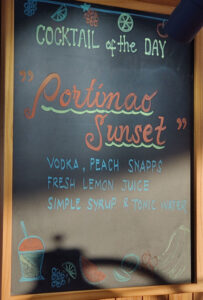 COCKTAIL of the DAY
"Portinao
Sunset"
VODKA, PEACH SNAPPS
FRESH LEMON JUICE
SIMPLE SYRUP & TONIC WATER